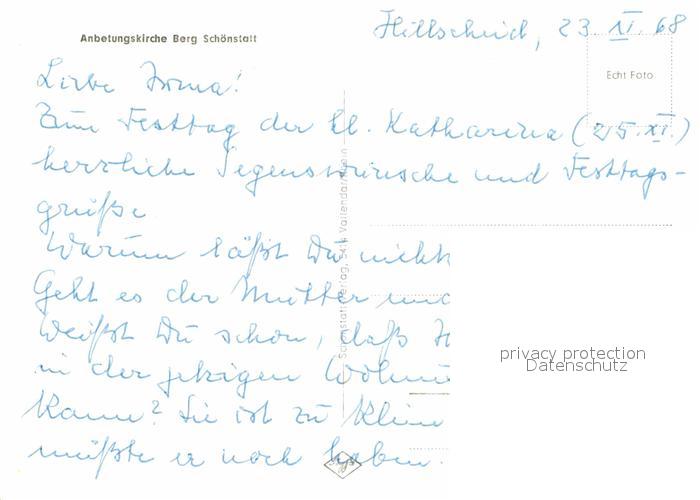 Anbetungskirche Berg Schönstatt
Hillscheid, 23. XI. 68
Echt Foto
Liebe Irma!
Zum Festtag der hl. Katharina (25. XI.)
herzliche Segenswünsche und Festtags-
grüße.
Warum läßt Du nicht
Geht es der Mutter und
Weißt Du schon, daß
in der jetzigen
kann? Sie ist zu klein
müßte er noch haben.
Schönstatt-Verlag, 5414 Vallendar/Rhein
privacy protection
Datenschutz